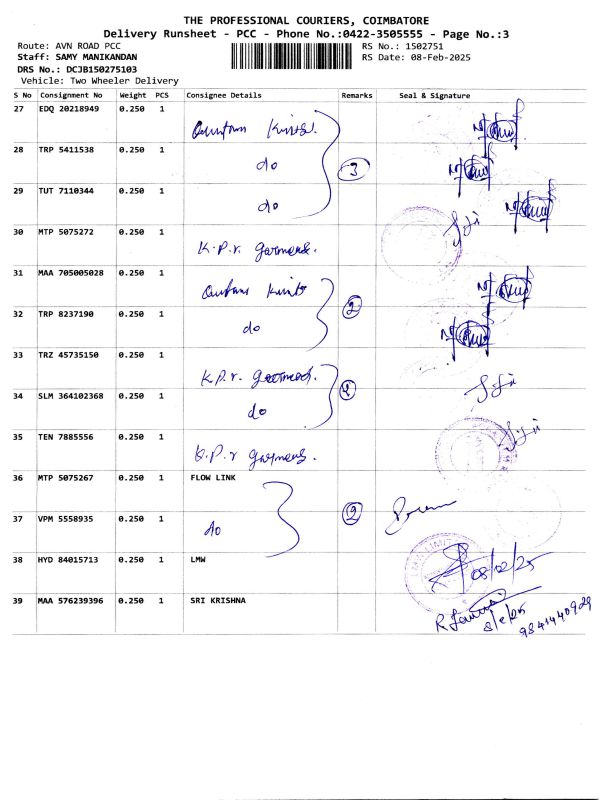 THE PROFESSIONAL COURIERS, COIMBATORE
Delivery Runsheet - PCC - Phone No.:0422-3505555 - Page No.:3
Route: AVN ROAD PCC RS No.: 1502751
Staff: SAMY MANIKANDAN RS Date: 08-Feb-2025
DRS No.: DCJB150275103
Vehicle: Two Wheeler Delivery
S No Consignment No Weight PCS Consignee Details Remarks Seal & Signature
27 EDQ 20218949 0.250 1
28 TRP 5411538 0.250 1 do 3
29 TUT 7110344 0.250 1 do
30 MTP 5075272 0.250 1 K.P.r. garments.
31 MAA 705005028 0.250 1 2
32 TRP 8237190 0.250 1 do
33 TRZ 45735150 0.250 1 K.P.r. garments. 2
34 SLM 364102368 0.250 1 do
35 TEN 7885556 0.250 1 K.P.r garments.
36 MTP 5075267 0.250 1 FLOW LINK 2
37 VPM 5558935 0.250 1 do
38 HYD 84015713 0.250 1 LMW 08/02/25
39 MAA 576239396 0.250 1 SRI KRISHNA
9841440929